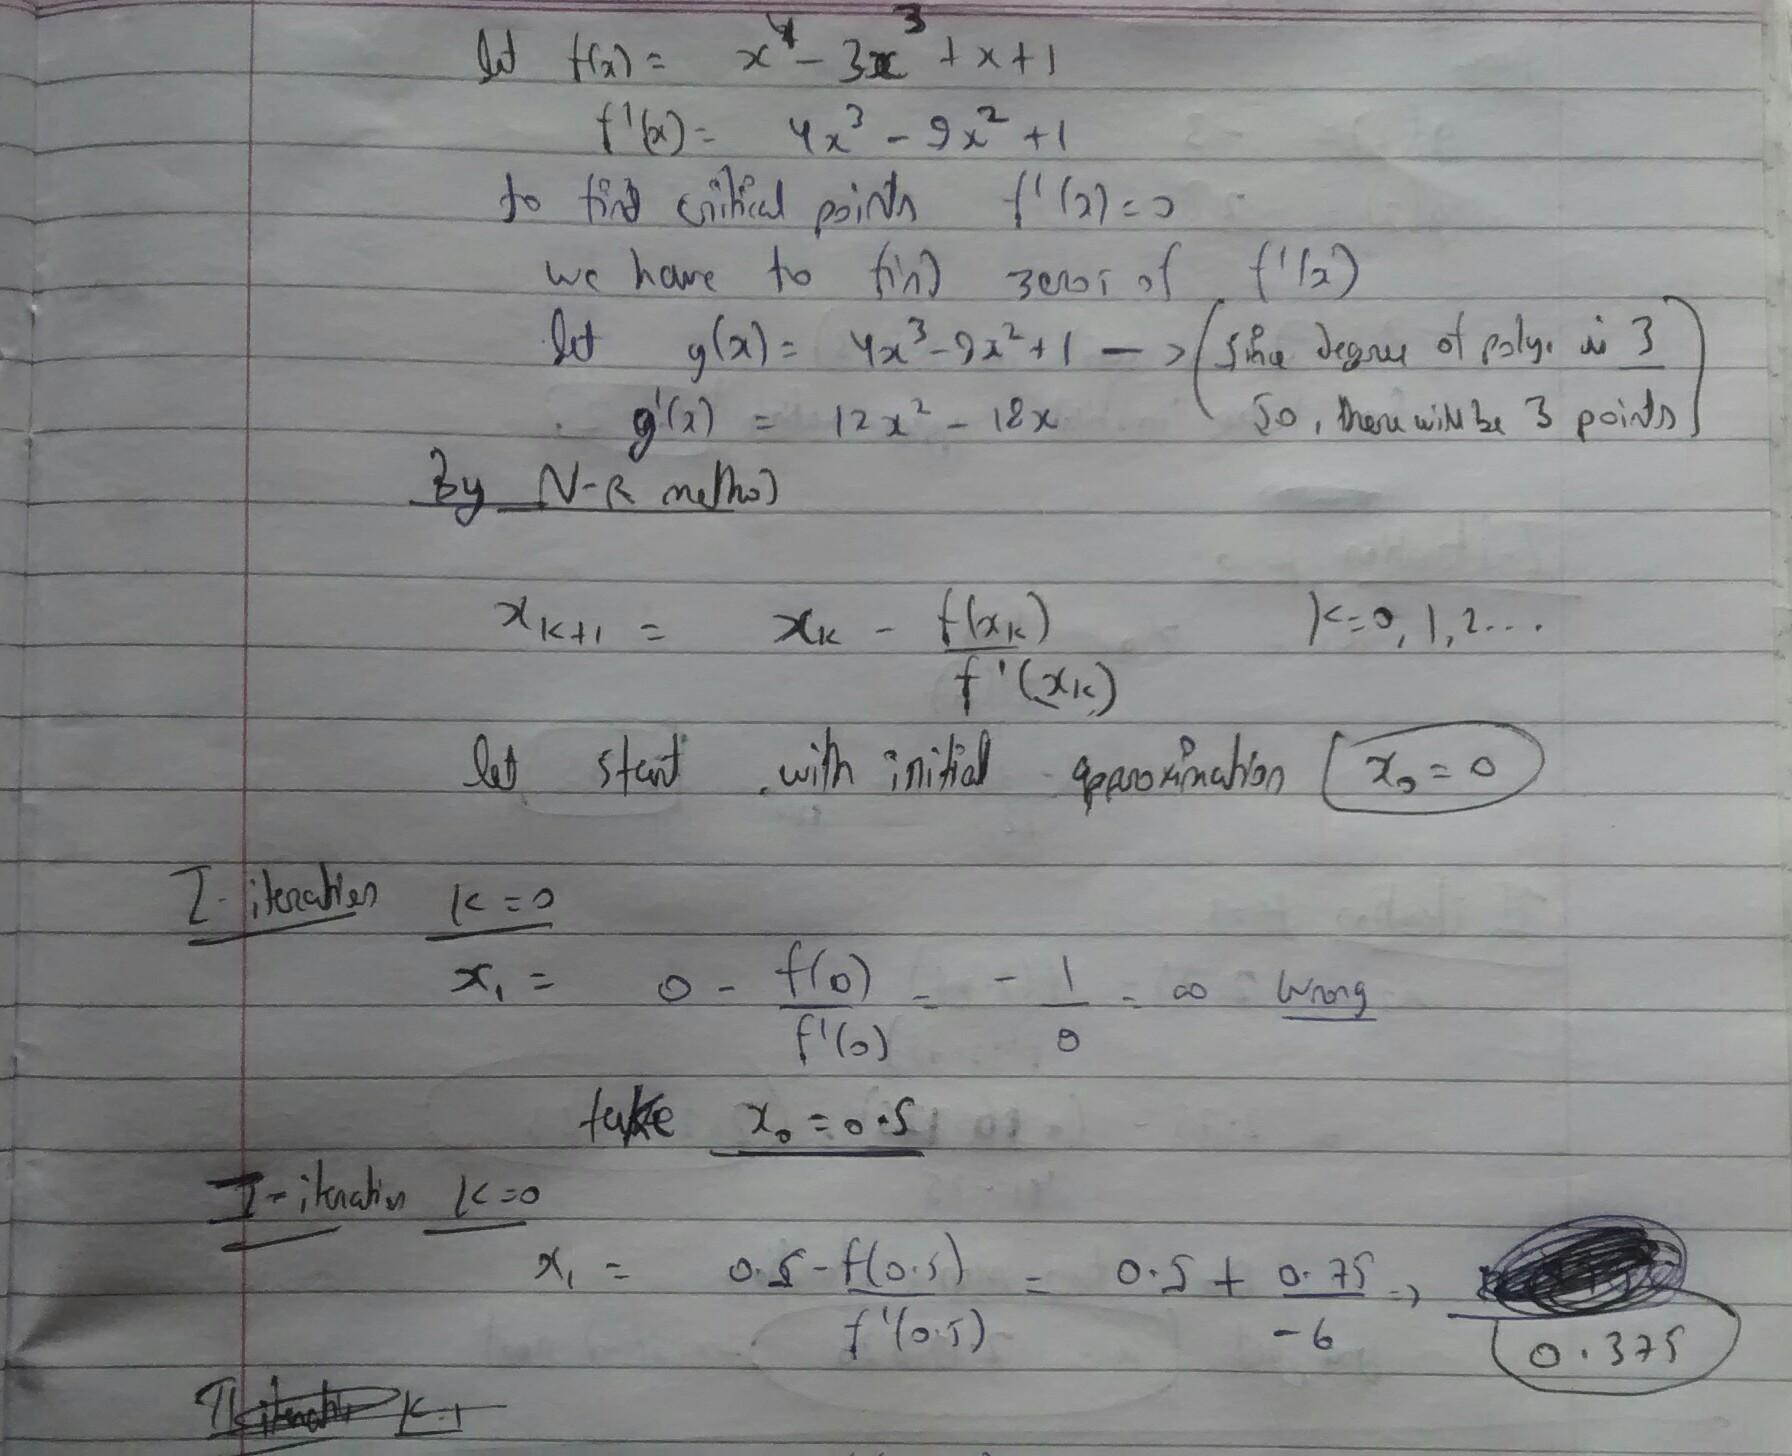 let f(x) = x⁴ - 3x³ + x + 1
f'(x) = 4x³ - 9x² + 1
to find critical points f'(x) = 0
we have to find zeros of f'(x)
let g(x) = 4x³ - 9x² + 1 → (Since degree of poly. is 3
g'(x) = 12x² - 18x So, there will be 3 points)
By N-R method
x_{k+1} = x_k - f(x_k) / f'(x_k) k = 0, 1, 2...
let start with initial approximation x₀ = 0
I-iteration k = 0
x₁ = 0 - f(0)/f'(0) = -1/0 = ∞ Wrong
take x₀ = 0.5
I-iteration k = 0
x₁ = 0.5 - f(0.5)/f'(0.5) = 0.5 + 0.75/-6 → 0.375
II iteration k=1